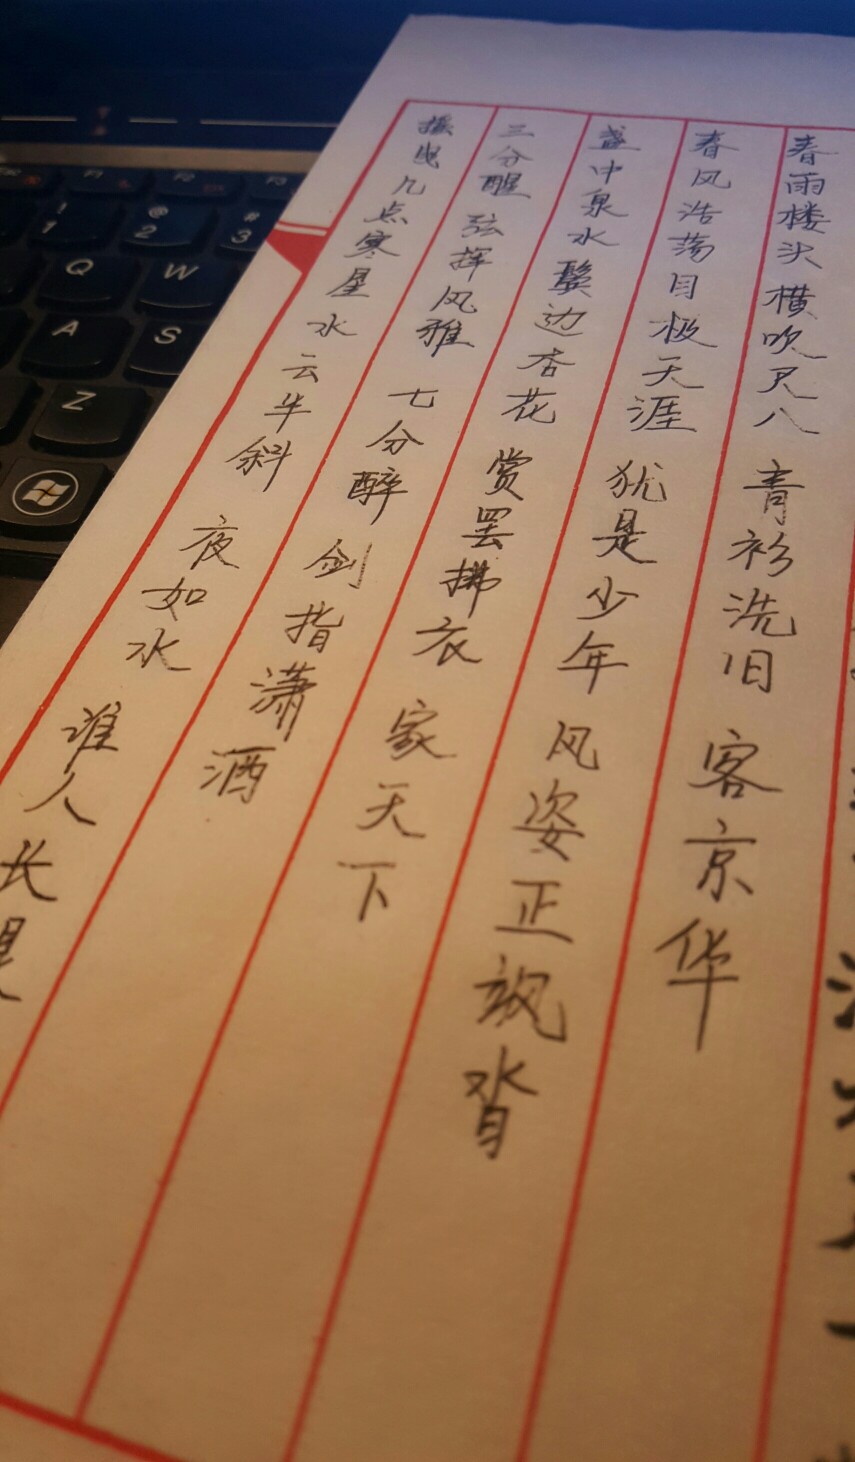 春雨楼头 横吹尺八 青衫洗旧 客京华
春风浩荡 目极天涯 犹是少年 风姿正飒沓
盏中泉水 鬓边杏花 赏罢拂衣 家天下
三分醒 弦挥风雅 七分醉 剑指潇洒
摇曳几点寒星 水云半斜 夜如水 谁人长
F1 F2 F3
! 1 @ 2 # 3
Q W
A S
Z